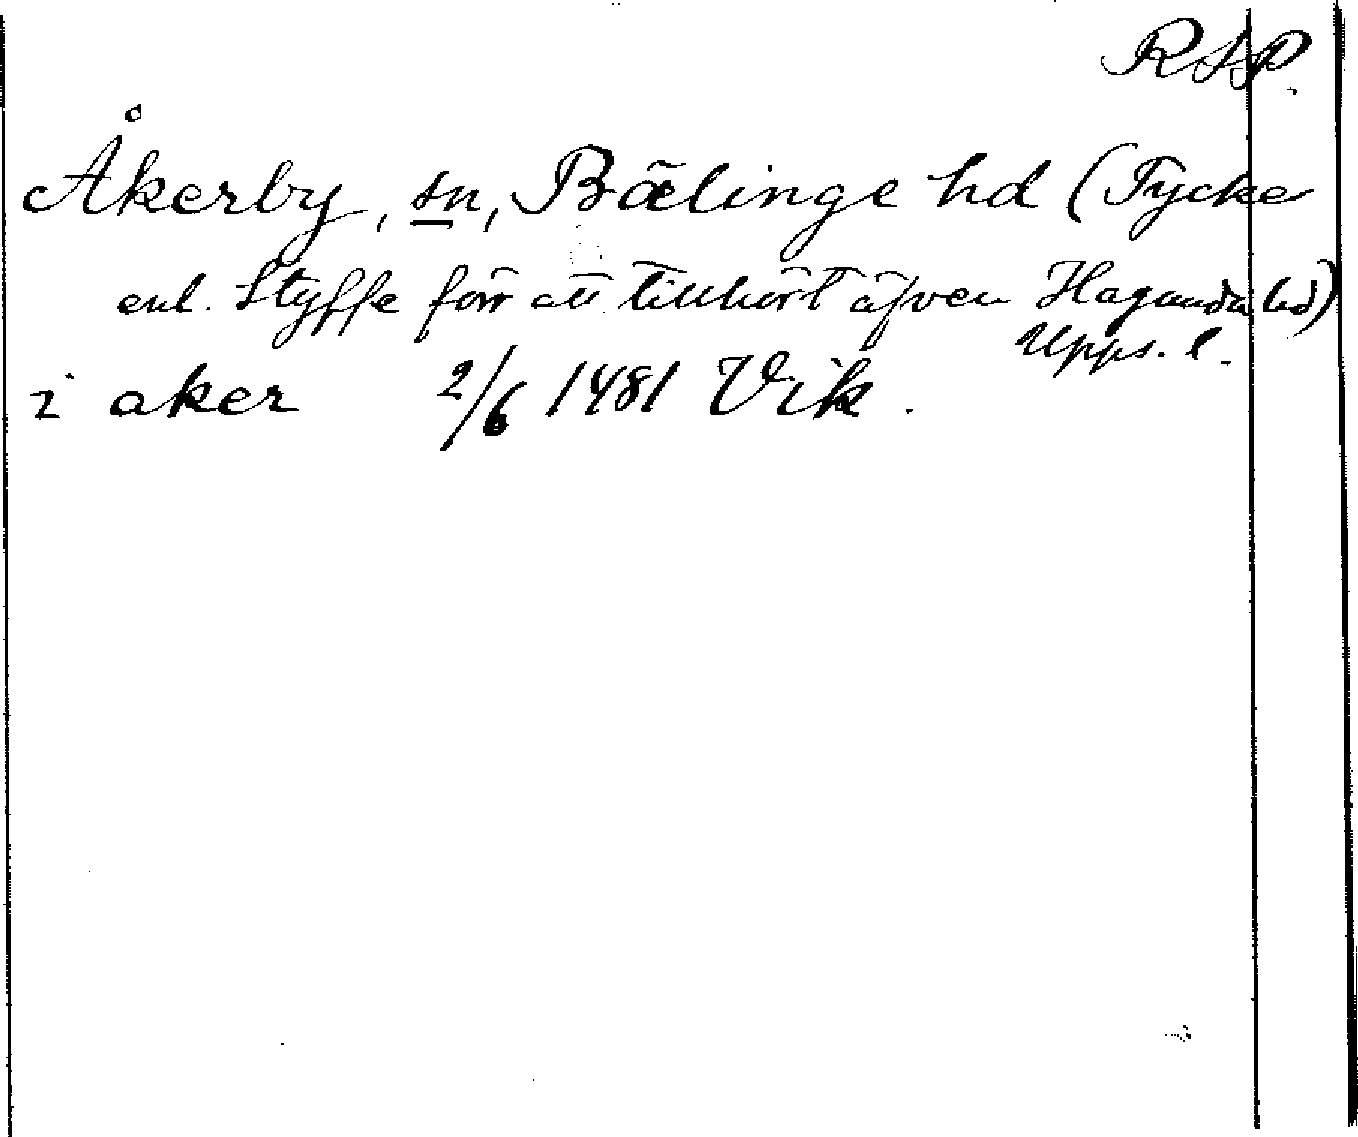 RSP.
Åkerby, sn, Bälinge hd (Tyckes
enl. Styffe förr att tillhört äfven Hagunda hd)
Upps. l.
i aker 2/6 1481 Vik.